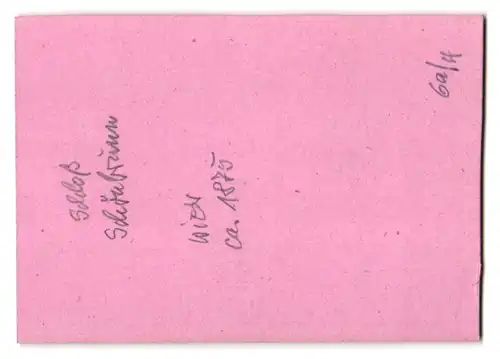 Schloß
Schönbrunn
Wien
ca. 1875
6a/H